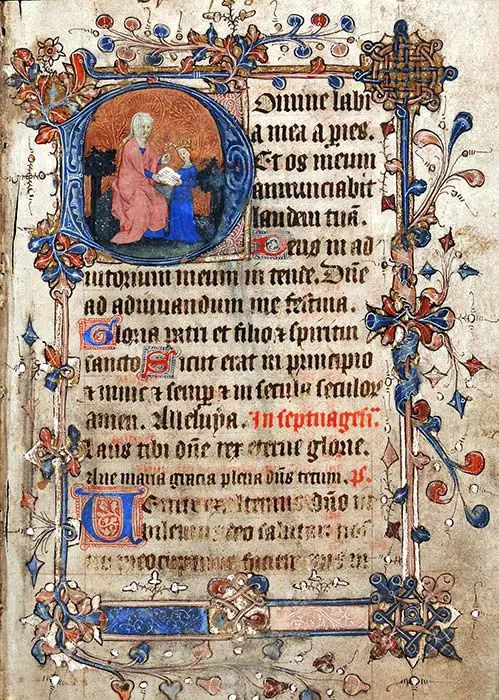 Domine labi
a mea aperies.
Et os meum
annunciabit
laudem tuā.
Deus in ad
iutorium meum intende. Dn̄e
ad adiuuandum me festina.
Gloria patri et filio ⁊ spiritui
sancto Sicut erat in principio
⁊ nunc ⁊ semꝑ ⁊ in secula seculoꝝ
amen. Alleluya. In septuageſī.
Laus tibi dn̄e rex eterne glorie.
Aue maria gracia plena dn̄s tecum. ps.
Uenite exultemus dn̄o iu
bilemus deo salutari nr̄o